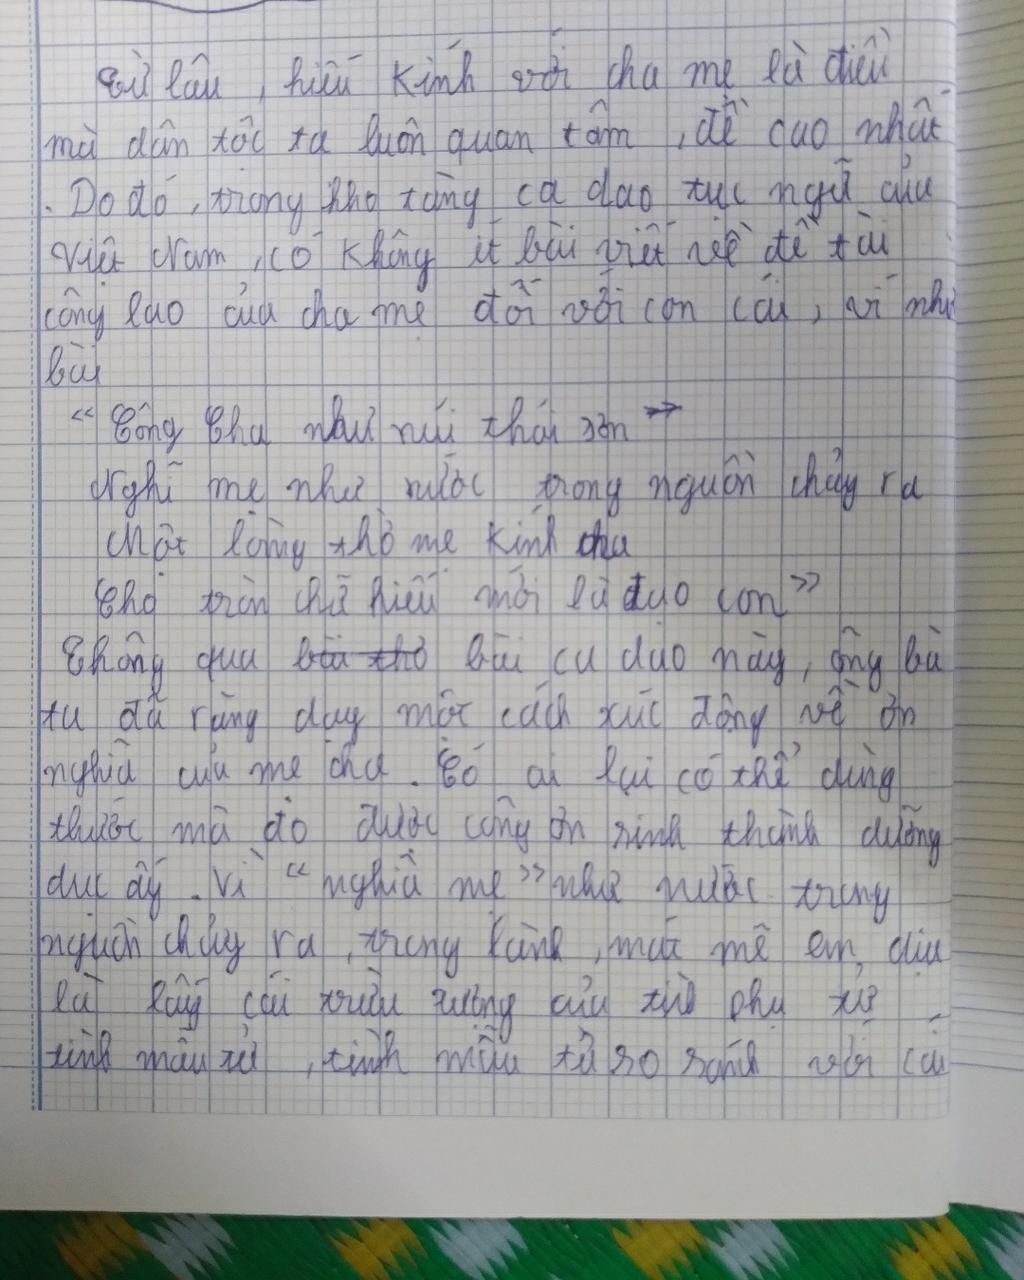 Từ lâu, hiếu kính với cha mẹ là điều
mà dân tộc ta luôn quan tâm, đề cao nhất
. Do đó, trong kho tàng ca dao tục ngữ của
Việt Nam, có không ít bài viết về đề tài
công lao của cha mẹ đối với con cái, ví như
bài
“ Công Cha như núi thái sơn ”
Nghĩ mẹ như nước trong nguồn chảy ra
Một lòng thờ mẹ kính cha
Cho tròn chữ hiếu mới là đạo con”
Thông qua bài thơ bài ca dao này, ông bà
ta đã răng dạy một cách xúc động về ơn
nghĩa của mẹ cha. Có ai lại có thể dùng
thước mà đo được công ơn sinh thành dưỡng
dục ấy. Vì “nghĩa mẹ” như nước trong
nguồn chảy ra, trong lành, mát mẻ em dịu
là lấy cái trừu tượng của phụ tử
tình mẫu tử, tình mẫu tử so sánh với cái